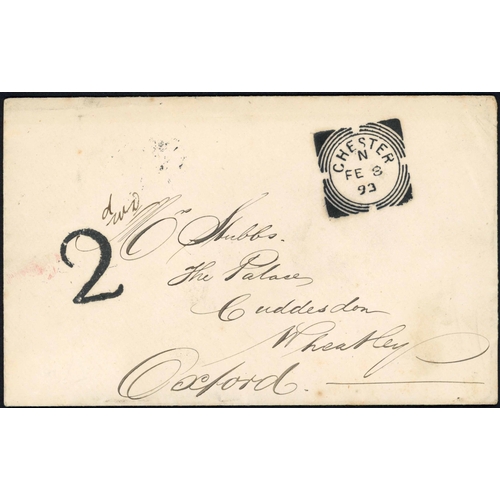 CHESTER
N
FE 8
93
2
Mrs Stubbs.
The Palace
Cuddesdon
Wheatley
Oxford.